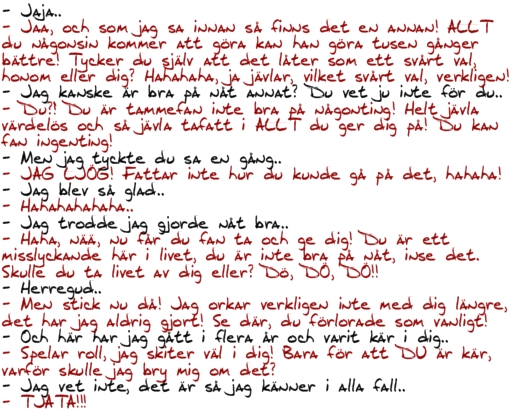 - Jaja..
- Jaa, och som jag sa innan så finns det en annan! ALLT
du någonsin kommer att göra kan han göra tusen gånger
bättre! Tycker du själv att det låter som ett svårt val,
honom eller dig? Hahahaha, ja jävlar, vilket svårt val, verkligen!
- Jag kanske är bra på nåt annat? Du vet ju inte för du..
- Du?! Du är tammefan inte bra på någonting! Helt jävla
värdelös och så jävla tafatt i ALLT du ger dig på! Du kan
fan ingenting!
- Men jag tyckte du sa en gång..
- JAG LJÖG! Fattar inte hur du kunde gå på det, hahaha!
- Jag blev så glad..
- Hahahahahaha..
- Jag trodde jag gjorde nåt bra..
- Haha, nää, nu får du fan ta och ge dig! Du är ett
misslyckande här i livet, du är inte bra på nåt, inse det.
Skulle du ta livet av dig eller? Dö, DÖ, DÖ!!
- Herregud..
- Men stick nu då! Jag orkar verkligen inte med dig längre,
det har jag aldrig gjort! Se där, du förlorade som vanligt!
- Och här har jag gått i flera år och varit kär i dig..
- Spelar roll, jag skiter väl i dig! Bara för att DU är kär,
varför skulle jag bry mig om det?
- Jag vet inte, det är så jag känner i alla fall..
- TJATA!!!